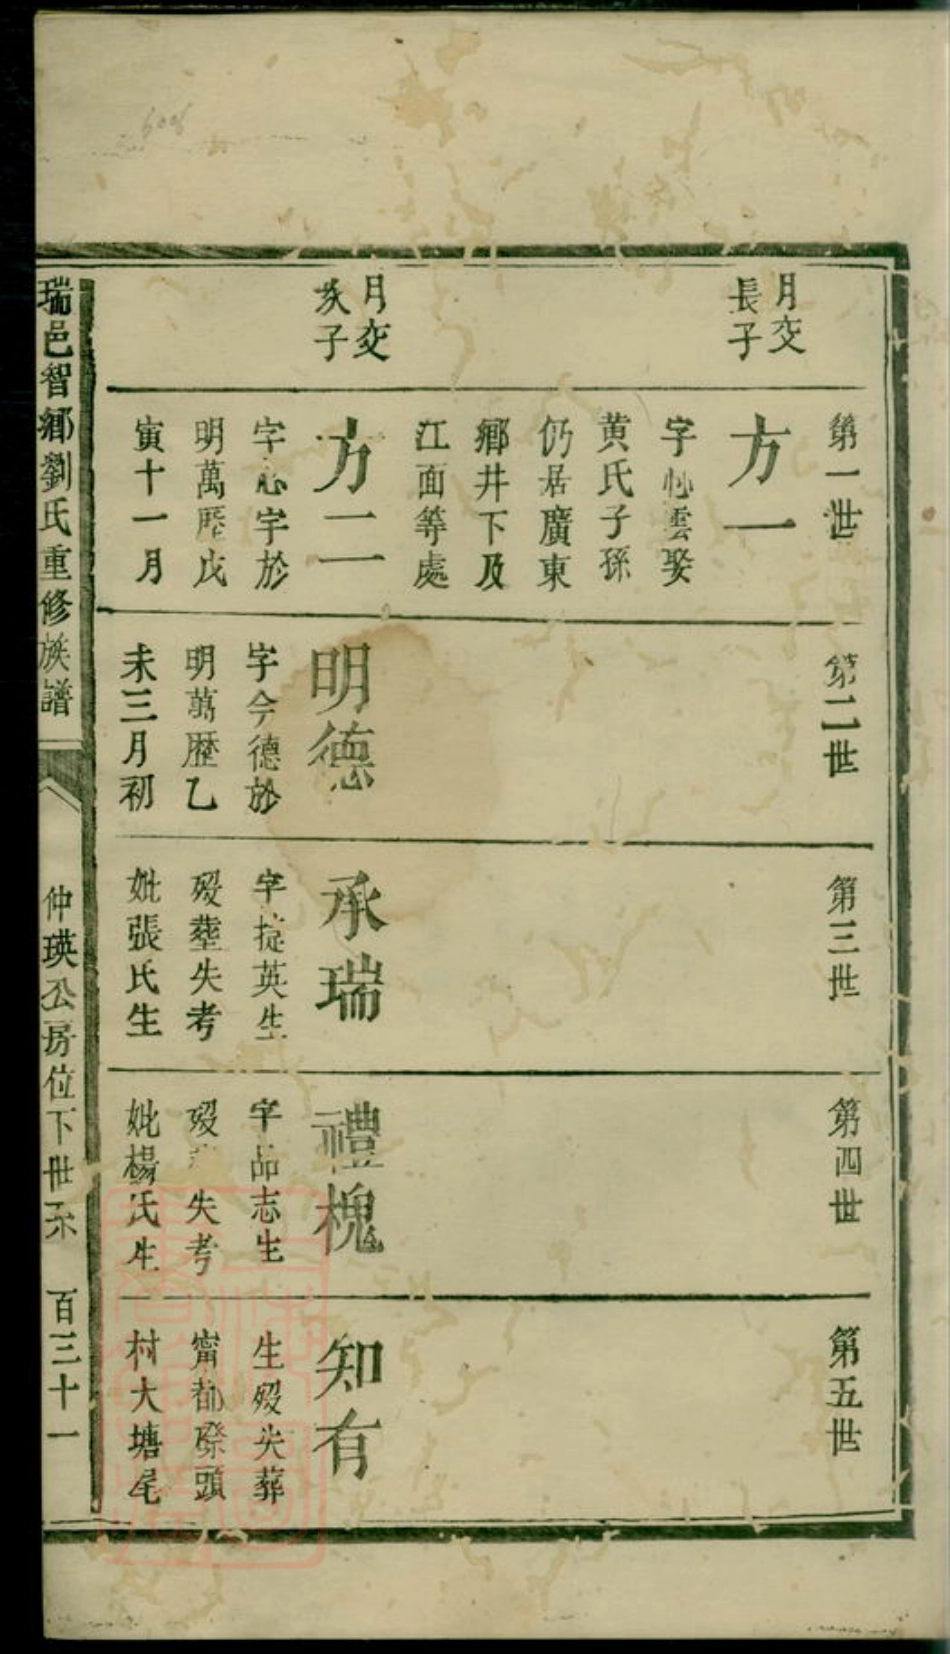 第一世
第二世
第三世
第四世
第五世
月交
長子
方一
字心雲娶
黄氏子孫
仍居廣東
鄉井下及
江面等處
月交
次子
方二
字心宇於
明萬歷戊
寅十一月
明德
字今德於
明萬歷乙
未三月初
承瑞
字挺英生
歿塟失考
妣張氏生
禮槐
字品志生
歿失考
妣楊氏生
知有
生歿失葬
甯都際頭
村大塘尾
瑞邑智鄉劉氏重修族譜
仲瑛公房位下世系
百三十一